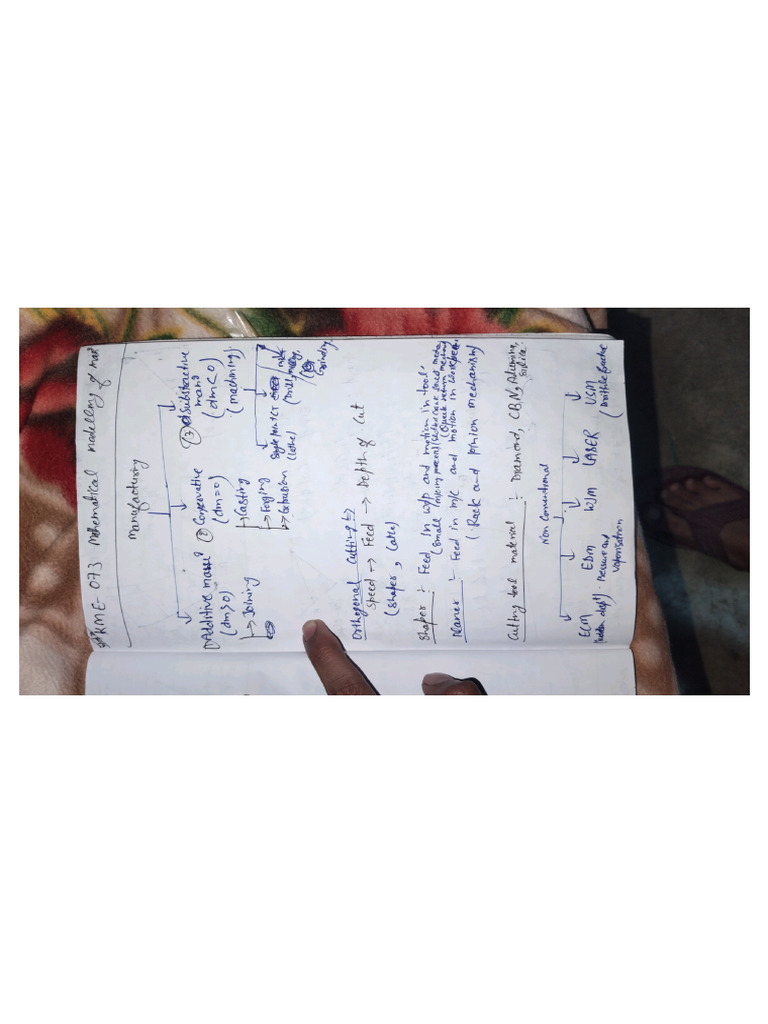 RME-073 Mathematical modelling of man
Manufacturing
① Additive mass (dm>0) → Joining
② Conservative (dm=0) → Casting → Forging → Extrusion
③ Subtractive mang (dm<0) (machining)
Single point CT (Lathe)
(Drill, milling) Grinding
Orthogonal Cutting :→
Speed → Feed → Depth of Cut
(Shaper, Lathe)
Shaper :- Feed in w/p and motion in tool.
(small
Planer :- Feed in m/c and motion in workpiece.
(Rack and pinion mechanism)
Cutting tool material :- Diamond, CBN,
Non Conventional
ECM
EBM : Pressure and vaporisation
WJM
LASER
USM (brittle fracture